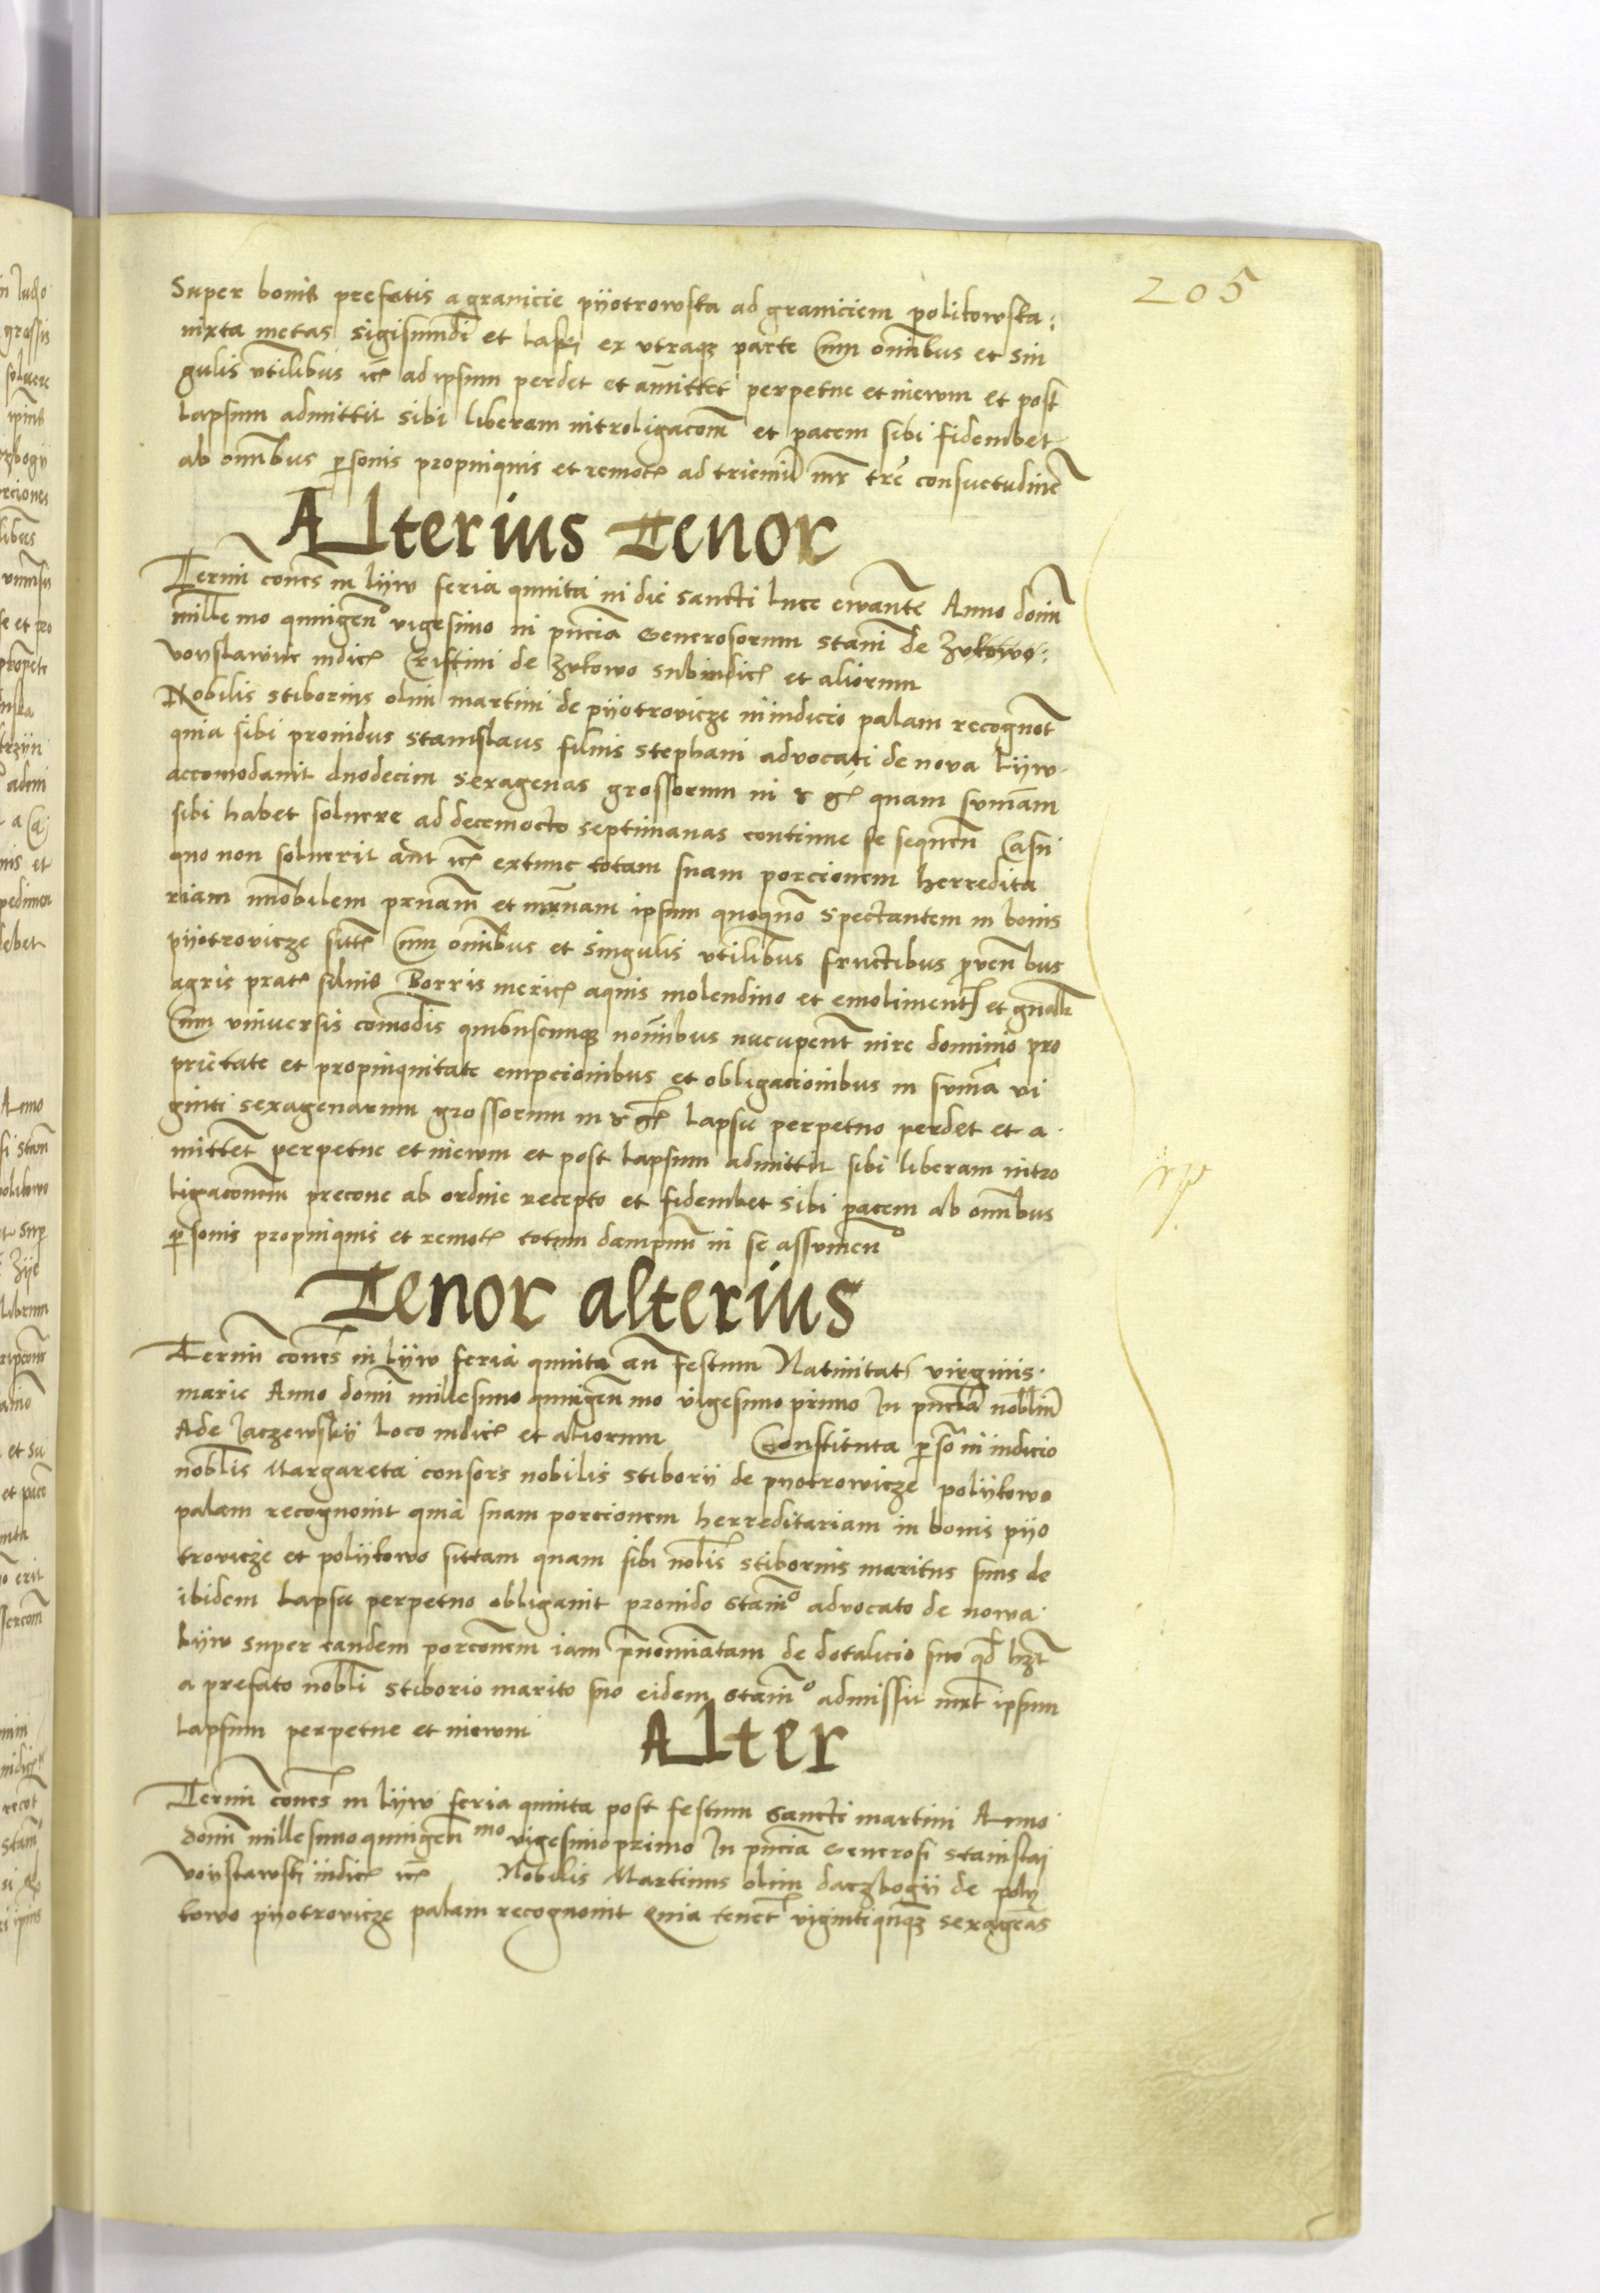 205
Super bonis prefatis a granicie pyotrowska ad graniciem politowska :
iuxta metas sigismūdi et ex vtraqȝ parte Cum omībus et sin
gulis vtilibus ad ipsum perdet et amittet perpetue et niewm et post
lapsum admittit sibi liberam introligacōnē et pacem sibi fideiubet
ab omībus personis propinquis et remotꝭ ad trieniū trē consuetudinē
Alterius Tenor
Termī in lyw feria quinta in die sancti luce ewāte Anno domī
millēmo quingenᵒ vigesimo in pn̄cia Generosorum stani de Zukowo :
voyslawic iudicꝭ Cristini de Zukowo subiudicꝭ et aliorum
Nobilis stiborius olim martini de pyotrovicze in iudicio palam recognot
quia sibi prouidus stanislaus filius stephani advocati de nova lyw
accomodauit duodecim sexagenas grossorum in quam sumam
sibi habet soluere ad decemocto septimanas continue se sequen Casu
quo non soluerit aut extunc totam suam porcionem herredita
riam imobilem prnam et mr̄nam ipsum quoquō spectantem in bonis
pyotrovicze sittꝭ Cum omībus et singulis vtilibus fructibus prouenbus
agris pratꝭ siluis Borris mericꝭ aquis molendino et emolimentꝭ et
Cum vniuersis comodis quibuscumqȝ nomībus nucupent iure dominio pro
prietate et propinquitate empcionibus et obligacionibus in sumā vi
ginti sexagenarum grossorum in lapsu perpetuo perdet et a
mittet perpetue et niewm et post lapsum admittit sibi liberam intro
ligacōnem precone ab ordine recepto et fideiubet sibi pacem ab omībus
personis propinquis et remotꝭ totum dampnū in se assumenᵒ
Tenor alterius
Termī in lyw feria quinta an festum Natiuitatꝭ virginis
marie Anno domī millesimo quingen mo vigesimo primo In pn̄cia nobliū
Ade Jaczewsky loco iudicꝭ et aliorum Constituta persō in iudicio
noblis Margareta consors nobilis stiborii de pyotrowicze polytowo
palam recognouit quia suam porcionem herreditariam in bonis pyo
trovicze et polytowo sittam quam sibi noblis stiborius maritus suus de
ibidem lapsu perpetuo obligauit prouido stanīᵒ advocato de nowa
lyw super eandem porcōnem iam prenomīatam de dotalicio suo qd hꝫt
a prefato nobli stiborio marito suo eidem stanīᵒ admissit ipsum
lapsum perpetue et niewm
Alter
Termī in lyw feria quinta post festum sancti martini Anno
domī millesimo quingen mo vigesimo primo In pn̄cia Generosi stanislai
voyslawsti iudicꝭ Nobilis Martinus olim daczbogii de poly
towo pyotrovicze palam recognouit Quia tenetᵘʳ vigintiquīqȝ sexagēas